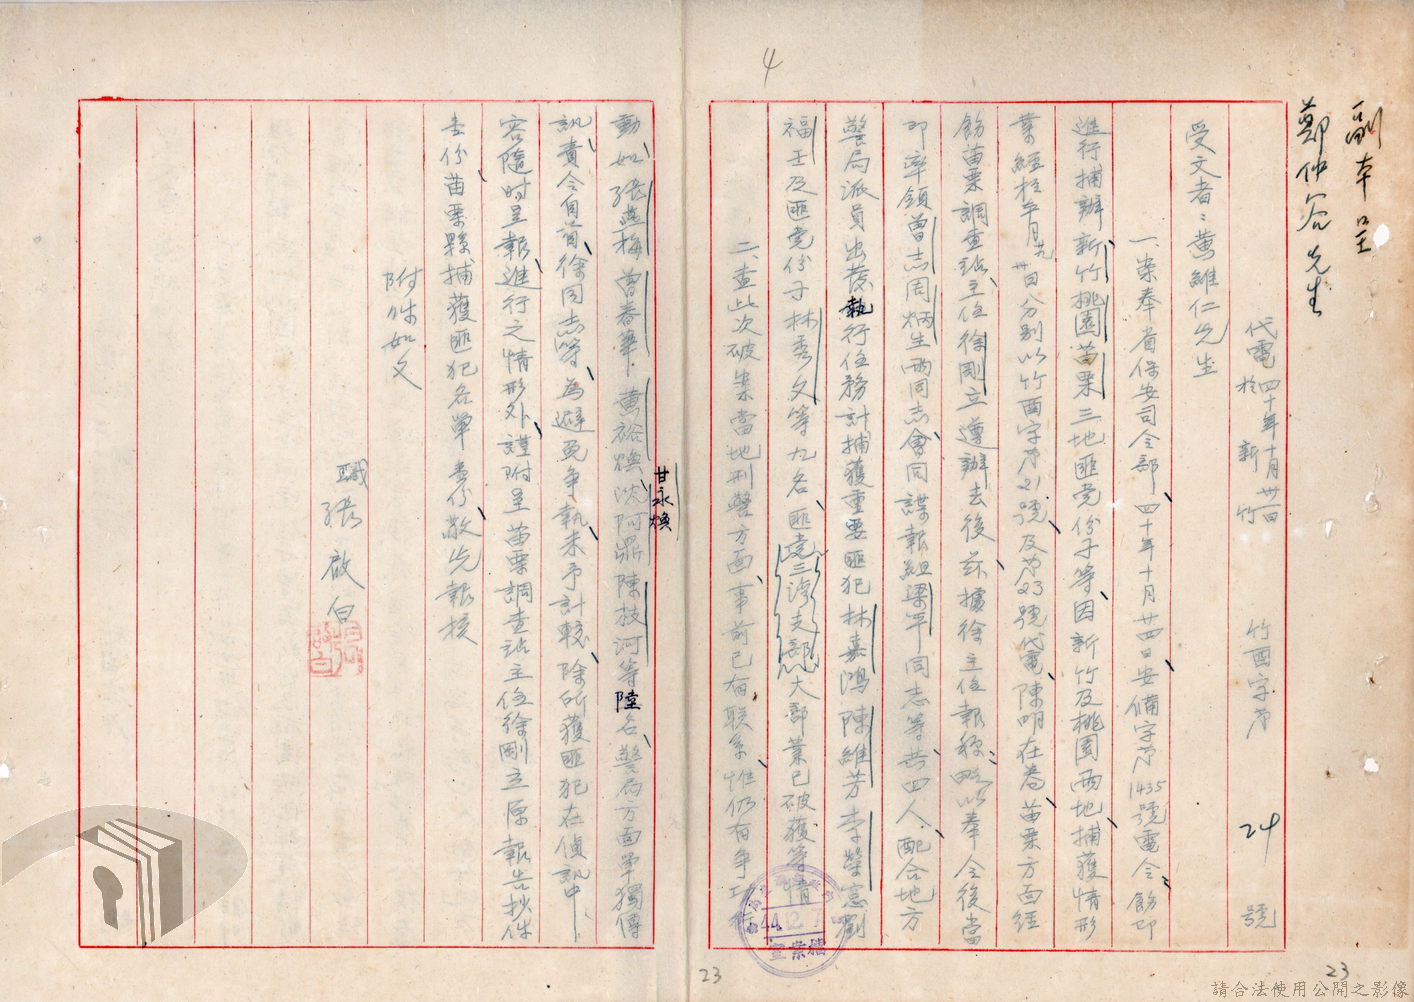 副本呈
鄭仲谷先生
代電 四十年十月卅日 於新竹 竹酉字第24號
受文者：黃維仁先生
一、案奉省保安司令部、四十年十月廿四日安備字第1435號電令：飭即
進行捕辦新竹桃園苗栗三地匪党份子等、因新竹及桃園兩地、捕獲情形
業經於本月卅日分別以竹酉字第21號、及第23號代電、陳明在卷、苗栗方面經
飭苗栗調查站、主任徐剛立遵辦去後、茲據徐主任報稱：略以奉令後當
即率領曾志周炳生兩同志、會同諜報組梁平同志等共四人、配合地方
警局派員出發執行任務計捕獲重要匪犯林嘉鴻陳維芳李榮憲劉
福壬及匪党份子林秀文等九名、匪党三灣支部大部業已破獲等情
二、查此次破案當地刑警方面、事前已有联系、惟仍有爭功行
動、如張燕梅曾春華、黃裕煥、沈阿鼎陳枝河等陸名、警局方面單獨傳
甘永煥
訊、責令自首、徐同志等、為避免爭執、未予計較、除所獲匪犯在偵訊中、
容隨時呈報、進行之情形外、謹附呈苗栗調查站主任徐剛立原報告抄件
壹份、苗栗縣捕獲匪犯名單壹份、敬先報核
附件如文
職
張啟白
4
44.12.7
檔案室
23
23
請合法使用公開之影像